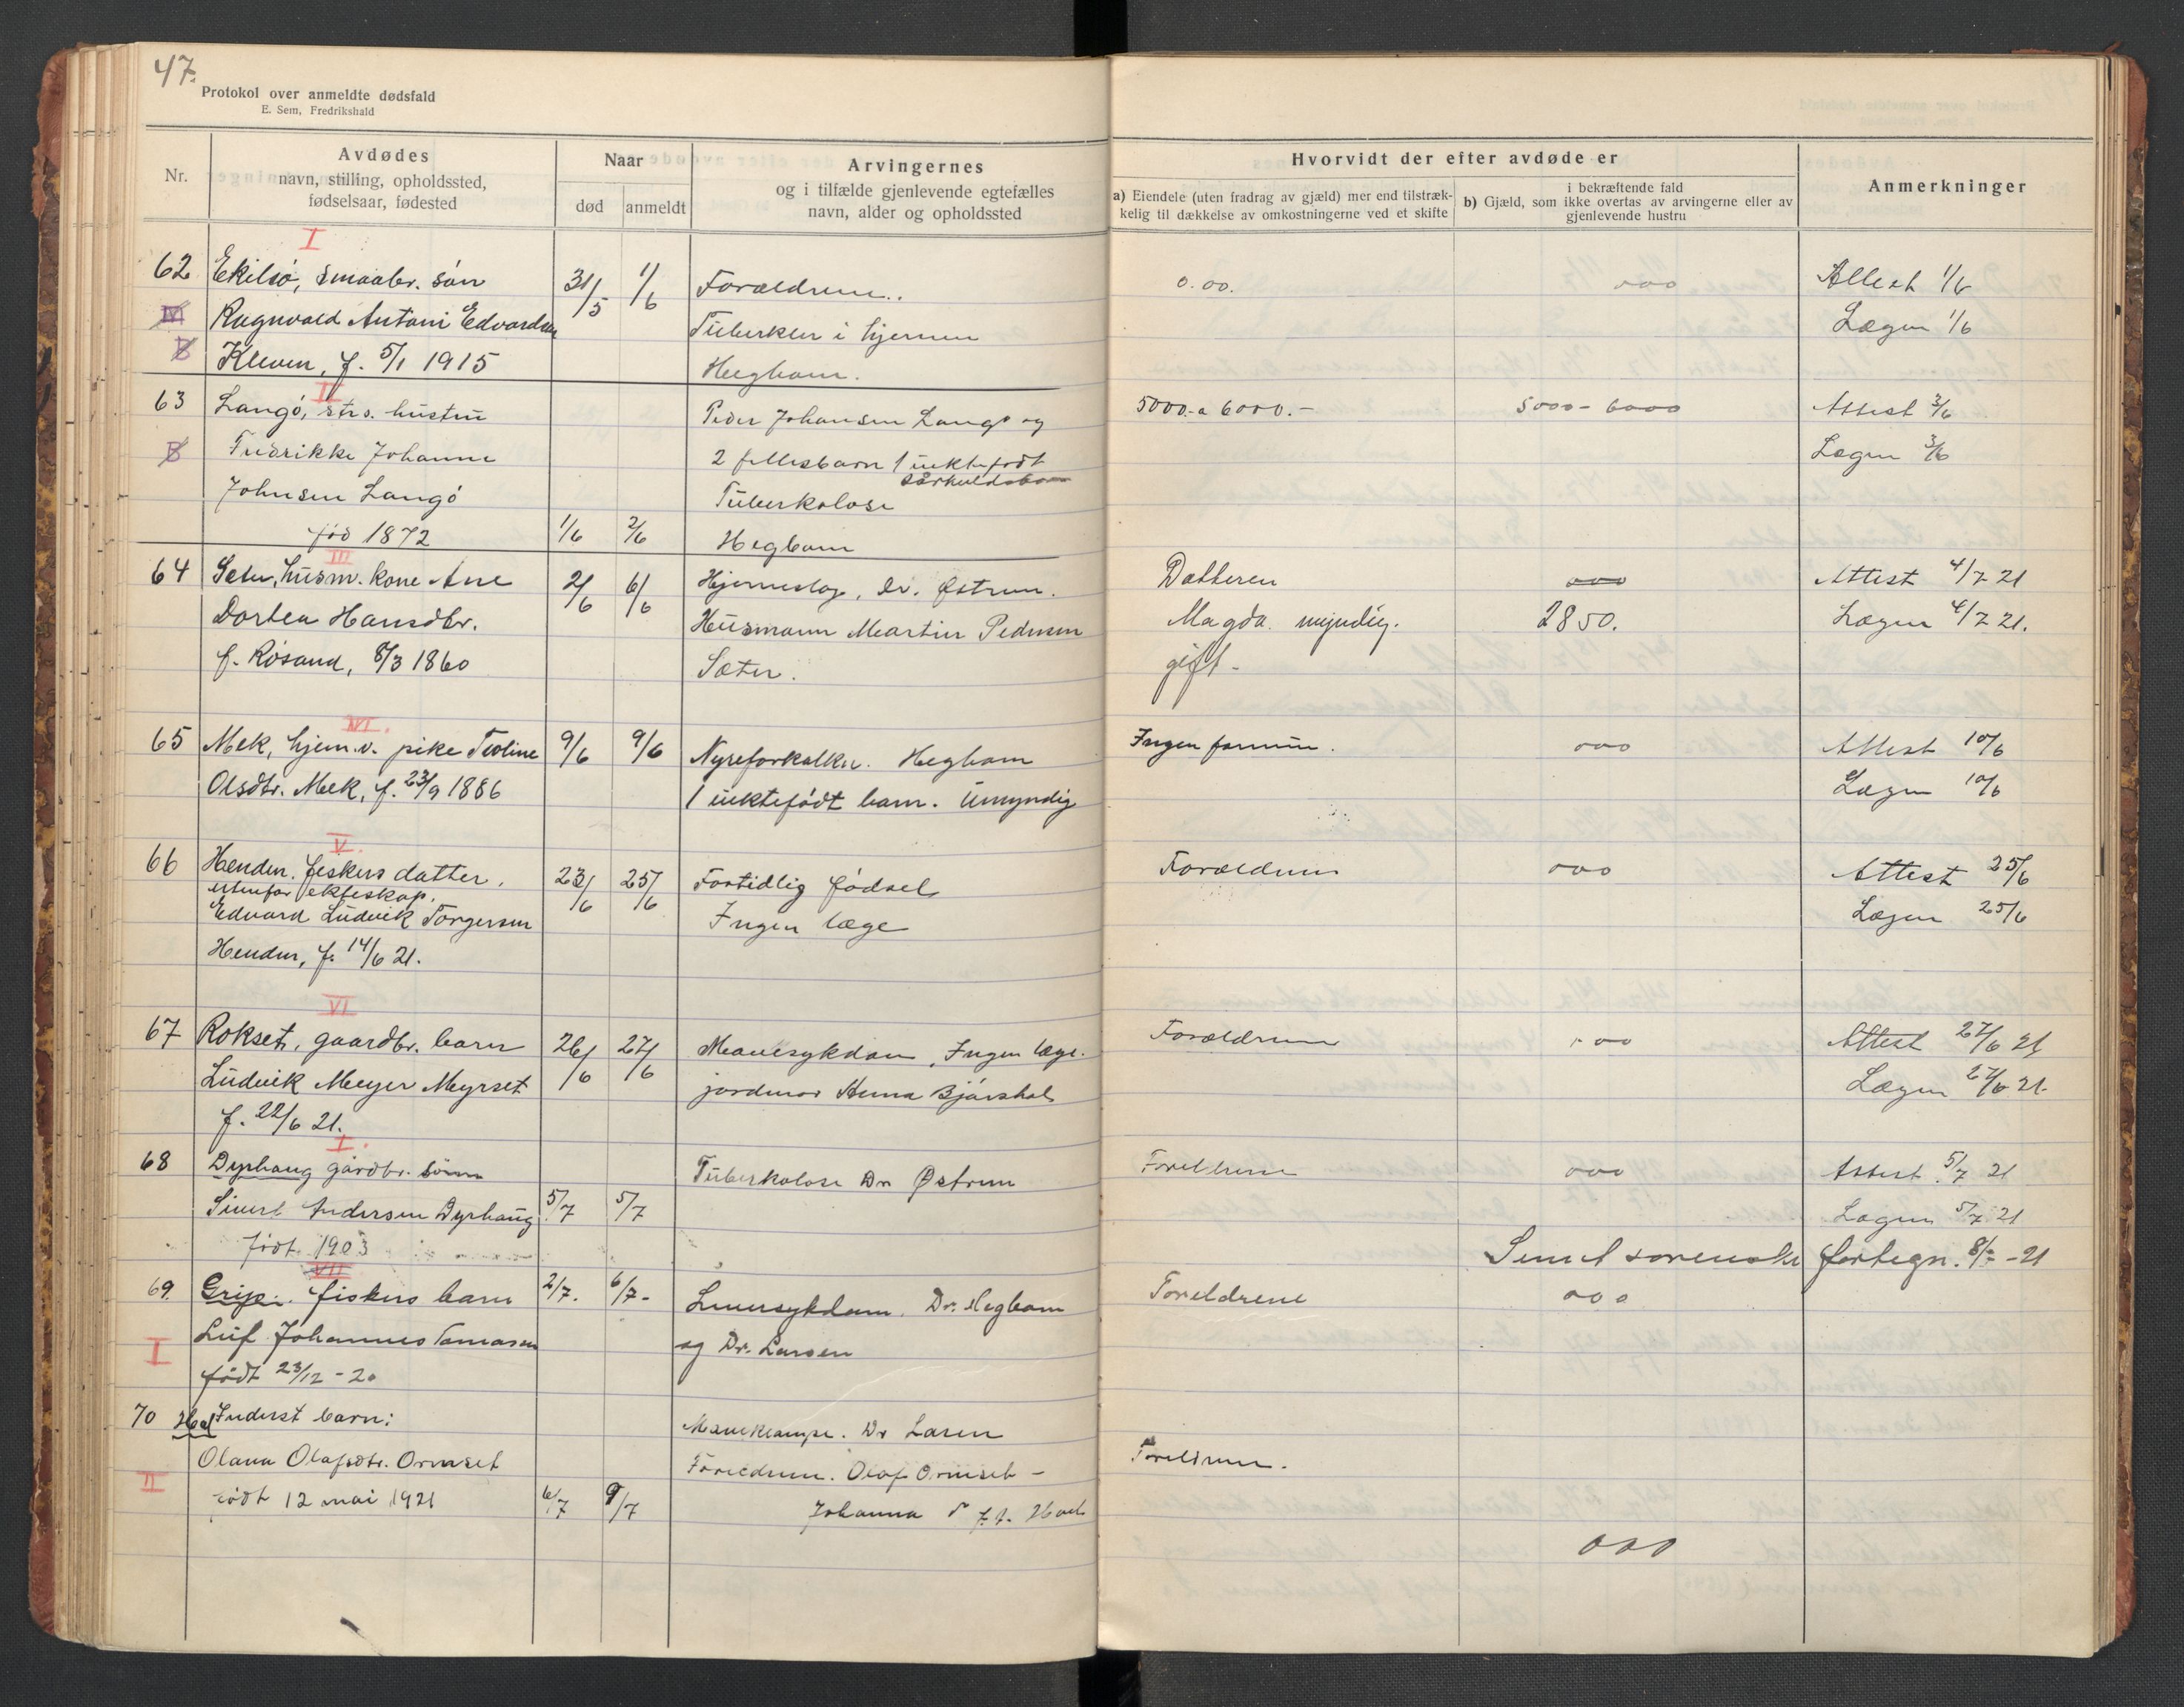 47.
Protokol over anmeldte dødsfald
E. Sem, Fredrikshald
Nr.
Avdødes
navn, stilling, opholdssted,
fødselsaar, fødested
Naar
død
anmeldt
Arvingernes
og i tilfælde gjenlevende egtefælles
navn, alder og opholdssted
Hvorvidt der efter avdøde er
a) Eiendele (uten fradrag av gjæld) mer end tilstræk-
kelig til dækkelse av omkostningerne ved et skifte
i bekræftende fald
b) Gjæld, som ikke overtas av arvingerne eller av
gjenlevende hustru
Anmerkninger
I
62 Ekilsø, smaabr. søn 31/5 1/6 Forældrene. 0.00. 000 Attest 1/6
IV Ragnvald Antoni Edvardsen Tuberkler i hjernen Lægen 1/6
B Kleven, f. 5/1 1915 Hegbom.
II
63 Langø, strs. hustru Peder Johansen Langø og 5000.- a 6000.- 5000-6000 Attest 3/6
B Fredrikke Johanne 2 fellesbarn 1 uektefødt Lægen 3/6
særkuldsbarn
Johnsen Langø Tuberkolose
fød 1872 1/6 2/6 Hegbom
III
64 Sæter, husm. kone Ane 2/6 6/6 Hjerneslag, Dr. Østrem. Datteren 000 Attest 4/7 21
Dortea Hansdtr. Husmann Martin Pedersen Magda myndig. 2850. Lægen 4/7 21.
f. Røsand, 8/3 1860 Sæter. gift-
VI.
65 Mek, hjem.v. pike Teoline 9/6 9/6 Nyreforkalkn. Hegbom Ingen formue. 000 Attest 10/6
Olsdtr. Mek, f. 23/9 1886 1 uektefødt barn. Umyndig Lægen 10/6
V.
66 Henden. fiskers datter. 23/6 25/6 Fortidlig fødsel Forældrene 000 Attest 25/6
utenfor ekteskap.
Edvard Ludvik Torgersen Ingen læge Lægen 25/6
Henden, f. 14/6 21.
VI
67 Rokset, gaardbr. barn 26/6 27/6 Mavesykdom, Ingen læge. Forældrene 000 Attest 27/6 21
Ludvik Meyer Myrset jordmor Anna Bjørshol Lægen 27/6 21.
f. 22/6 21.
I.
68 Dyrhaug gårdbr. sønn Tuberkolose Dr Østrem Foreldrene 000 Attest 5/7 21
Sivert Andersen Dyrhaug 5/7 5/7 Lægen 5/7 21
født 1903 Sendt sorenskr fortegn. 8/7-21
VII
69. Grip. fiskers barn 2/7. 6/7- Leversykdom. Dr. Hegbom Foreldrene 000
I Leif Johannes Tomasen og Dr. Larsen
født 23/12-20
70 Inderst barn: Mavekrampe. Dr Larsen
Olava Olafsdtr. Ormset Foreldrene. Olaf Ormset - Foreldrene.
II født 12 mai 1921 6/7 9/7 Johanna
000